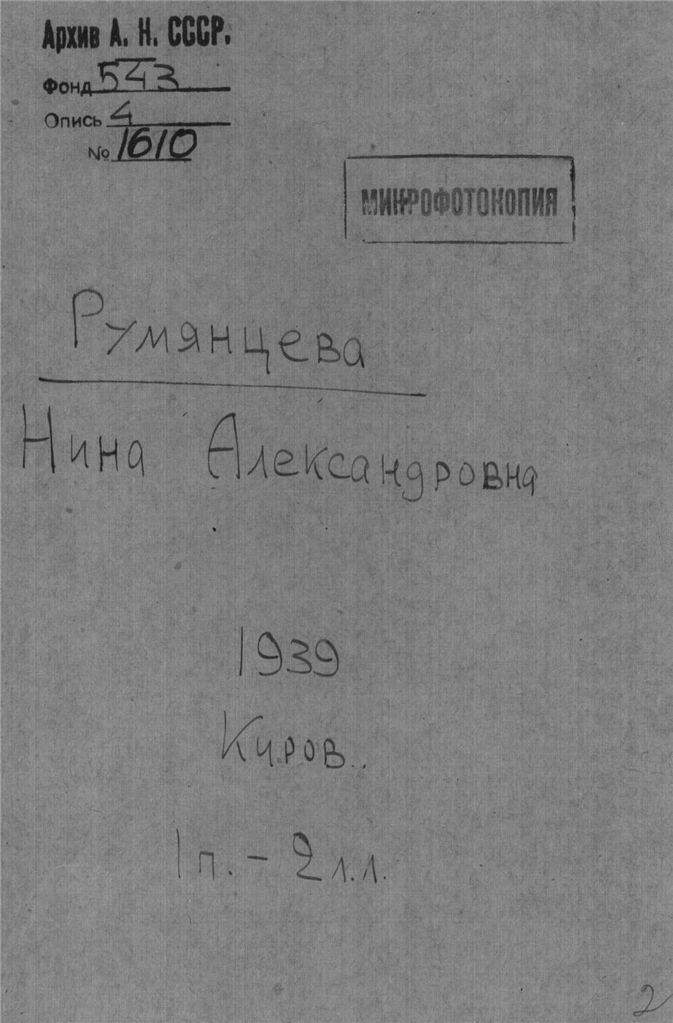 Архив А. Н. СССР.
Фонд 543
Опись 4
№ 1610
МИКРОФОТОКОПИЯ
Румянцева
Нина Александровна
1939
Киров.
1 п. - 2 л.л.
2